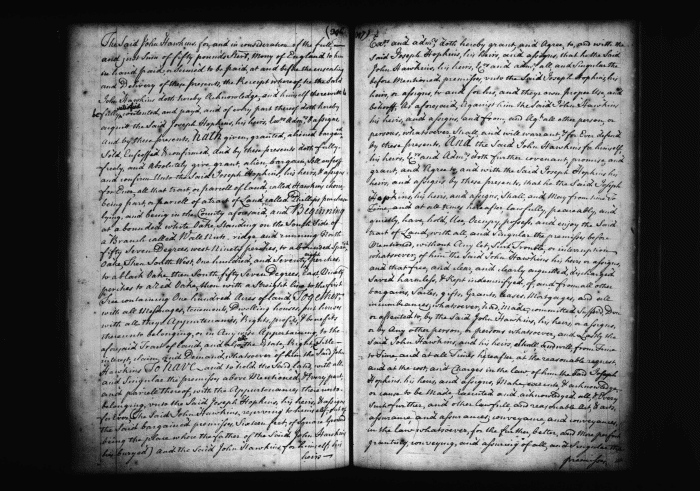 (206
The Said John Hawkins, for, and in consideration of the full,
and just Sum of fifty pounds Sterl. Money of England, to him
in hand paid, or Secured to be paid, at and before the ensealing
and Delivery of these presents, the Receipt whereof he the Said
John Hawkins doth hereby Acknowledge, and himself therewith to
be fully contented, and payd, and of every part thereof doth hereby
acquit the Said Joseph Hopkins, his heirs, Exrs. Admrs. & assignes,
and by these presents, Hath given, granted, aliened, bargain
Sold, Enfeoffed & confirmed, And by these presents doth fully
freely, and absolutely give, grant, alien, bargain, Sell, enfeoff
and confirm Unto the Said Joseph Hopkins, his heirs, & assigns
for Ever all that tract, or parcell of land, called Hawkins
being part, or parcell of a tract of Land called Phillips purchase
lying, and being in the County aforesaid, and Beginning
at a bounded white Oake, Standing on the South Side of
a Branch called Wallnut, ridge and running North
fifty Seven Degrees, west Ninety perches, to a bounded
Oake, Then South West, One hundred, and Seventy perches
to a black Oake, then South fifty Seven Degrees, East Ninety
perches to a Red Oake, then with a Straight line to the first
Tree containing One hundred Acres of land, Together,
with all Messuages, tenements, Dwelling houses,
with all they Appurtenances, Rights, profits, & benefits,
thereunto belonging, or in Any wise Appertaining to the
aforesaid Tract of land, and the Estate, Right, title
interest, Claim, and Demand, whatsoever of him the Said John
Hawkins To Have and to hold the Said land, with all
and Singular the premisses, above Mentioned, & Every part
and parcell thereof with the Appurtenances, thereunto
belonging, unto the Said Joseph Hopkins, his heirs, & Assigns
for Ever, the Said John Hawkins, reserving to himself, out of
the Said bargained premisses, Sixteen feet, of Square Ground
being the place where the father of the Said John Hawkins
lies buryed) and the Said John Hawkins for himself, his
heirs
207)
Exrs. and admrs. doth hereby grant, and Agree, to, and with the
Said Joseph Hopkins, his heirs, and assigns, that he the Said
John Hawkins, his heirs, Exrs and admrs. all, and Singular the
before Mentioned premisses, unto the Said Joseph Hopkins, his
heirs, or assigns, to and for his, and they own proper use, and
behoof, As aforesaid, Against him the Said John Hawkins
his heirs, and assigns, and from, and Agst. all other person, or
persons, whatsoever Shall, and will warrant, & for Ever defend
by these presents, And the Said John Hawkins for himself,
his heirs, Exrs and Admrs doth further covenant, promise, and
grant, and Agree to, and with the Said Joseph Hopkins, his
heirs, and assigns by these presents, that he the Said Joseph
Hopkins, his heirs, and assigns, Shall, and May from time to
Time, and at all times hereafter lawfully, peaceably, and
quietly, have, hold, Use, Occupy, possess, and enjoy the Said
tract of Land, with all, and Singular the premisses before
Mentioned, without Any Let, Suit, Trouble, or interruption,
whatsoever, of him the Said John Hawkins his heirs, or assigns,
and that free, and clear, and clearly acquitted, discharged
Saved harmless, & kept indemnifyed, of, and from all other
bargains, Sailes, gifts, Grants, Leases, Mortgages, and all
incumbrances, whatsoever, had, Made, committed, Suffered, Done
or assented to, by the Said John Hawkins, his heirs, or assigns,
or by Any other person, or persons whatsoever, and Lastly the
Said John Hawkins, and his heirs, Shall and will from Time
to Time, and at all Times hereafter, at the reasonable request
and at the cost, and Charges in the law, of him the Said Joseph
Hopkins, his heirs, and assigns, Make, execute, & acknowledge,
or cause to be Made, executed and acknowledged, all, & Every
Such further, and other lawfull, and reasonable Act, & acts,
assurance, and assurances, conveyance, and conveyances,
in the law whatsoever, for the further, better, and More perfect
granting, conveying, and assuring of all, and Singular the
premisses